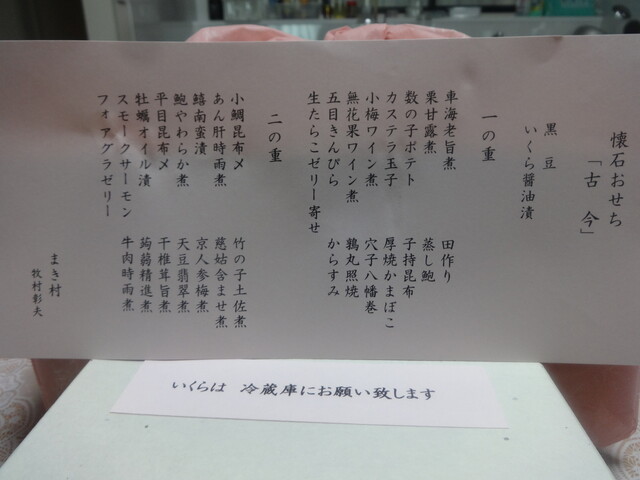 懐石おせち
「古 今」
黒 豆
いくら醤油漬
一の重
車海老旨煮
田作り
栗甘露煮
蒸し鮑
数の子ポテト
子持昆布
カステラ玉子
厚焼かまぼこ
小梅ワイン煮
穴子八幡巻
無花果ワイン煮
鶉丸照焼
五目きんぴら
からすみ
生たらこゼリー寄せ
二の重
小鯛昆布〆
竹の子土佐煮
あん肝時雨煮
慈姑含ませ煮
鰭南蛮漬
京人参梅煮
鮑やわらか煮
天豆翡翠煮
平目昆布〆
干椎茸旨煮
牡蠣オイル漬
蒟蒻精進煮
スモークサーモン
牛肉時雨煮
フォアグラゼリー
まき村
牧村彰夫
いくらは 冷蔵庫にお願い致します